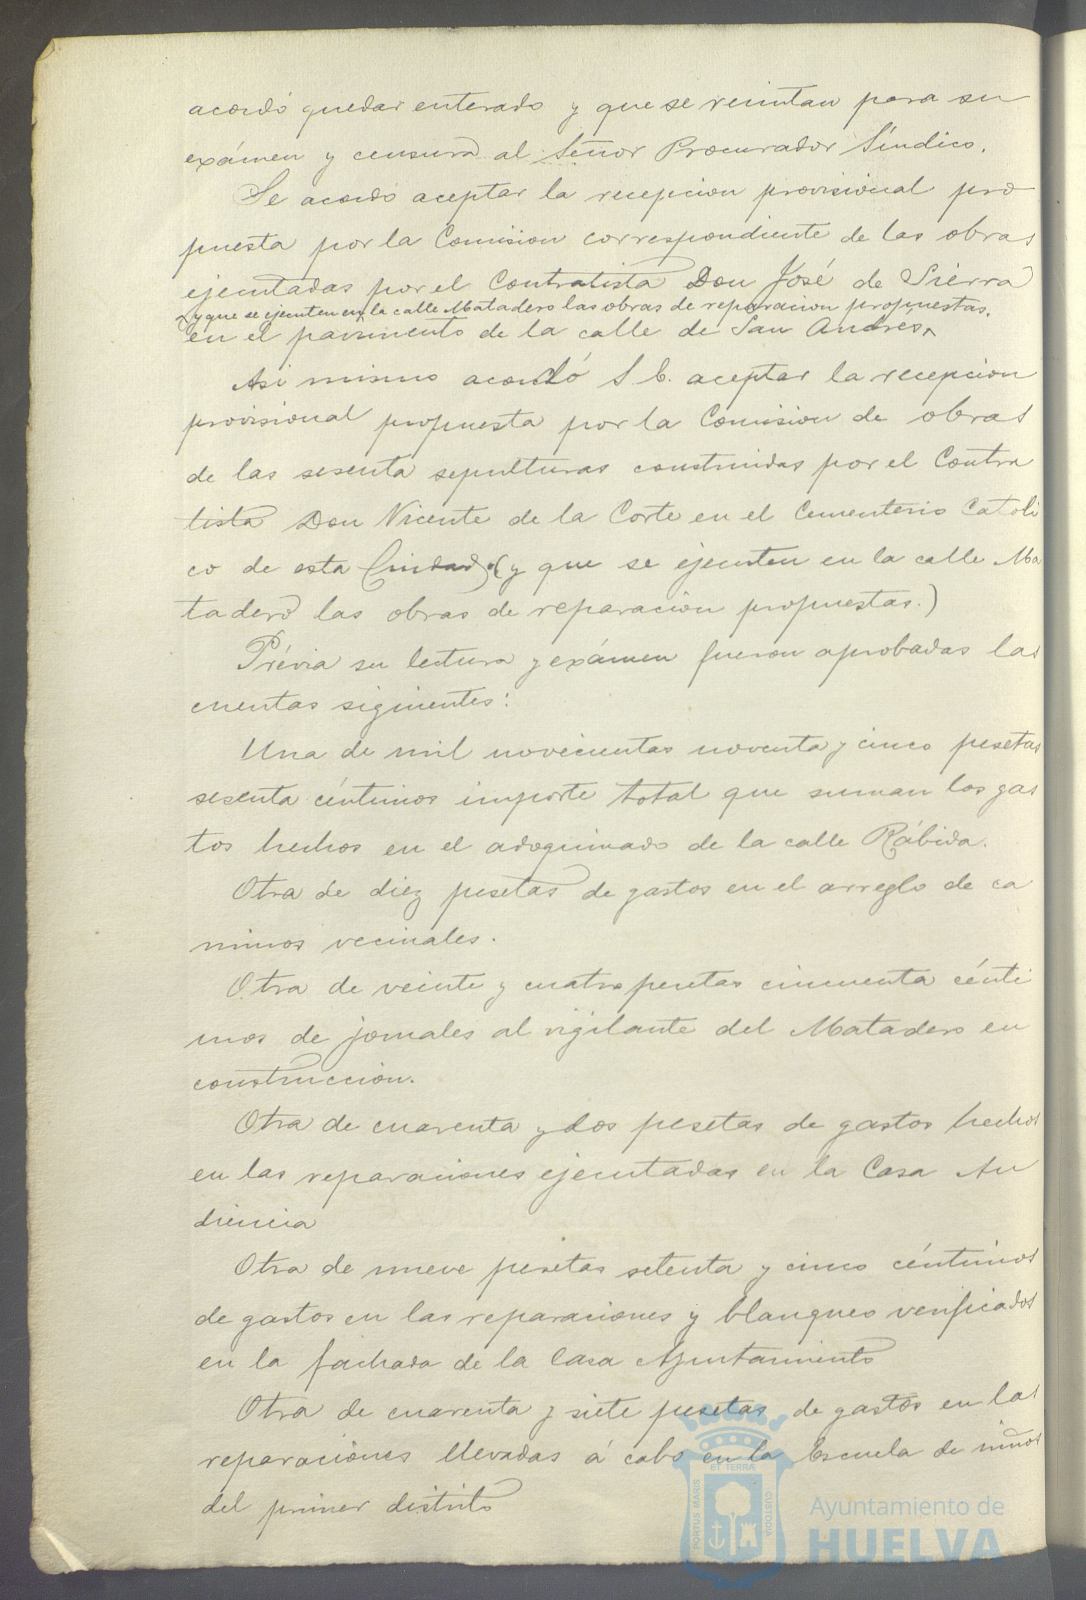 acordó quedar enterado y que se remitan para su
exámen y censura al Señor Procurador Síndico.
Se acordó aceptar la recepcion provisional pro
puesta por la Comision correspondiente de las obras
ejecutadas por el Contratista Don José de Sierra
y que se ejecuten en la calle Matadero las obras de reparacion propuestas.
en el pavimento de la calle de San Andres
Asi mismo acordó S. E. aceptar la recepcion
provisional propuesta por la Comision de obras
de las sesenta sepulturas construidas por el Contra
tista Don Vicente de la Corte en el Cementerio Catoli
co de esta Ciudad (y que se ejecuten en la calle Ma
tadero las obras de reparacion propuestas.)
Prévia su lectura y exámen fueron aprobadas las
cuentas siguientes:
Una de mil novecientas noventa y cinco pesetas
sesenta céntimos importe total que suman los gas
tos hechos en el adoquinado de la calle Rábida.
Otra de diez pesetas de gastos en el arreglo de ca
minos vecinales.
Otra de veinte y cuatro pesetas cincuenta cénti
mos de jornales al vigilante del Matadero en
construccion.
Otra de cuarenta y dos pesetas de gastos hechos
en las reparaciones ejecutadas en la Casa Au
diencia
Otra de nueve pesetas setenta y cinco céntimos
de gastos en las reparaciones y blanqueo verificados
en la fachada de la Casa Ayuntamiento
Otra de cuarenta y siete pesetas de gastos en las
reparaciones llevadas á cabo en la Escuela de niños
del primer distrito
PORTUS MARIS
ET TERRA
CUSTODIA
Ayuntamiento de
HUELVA